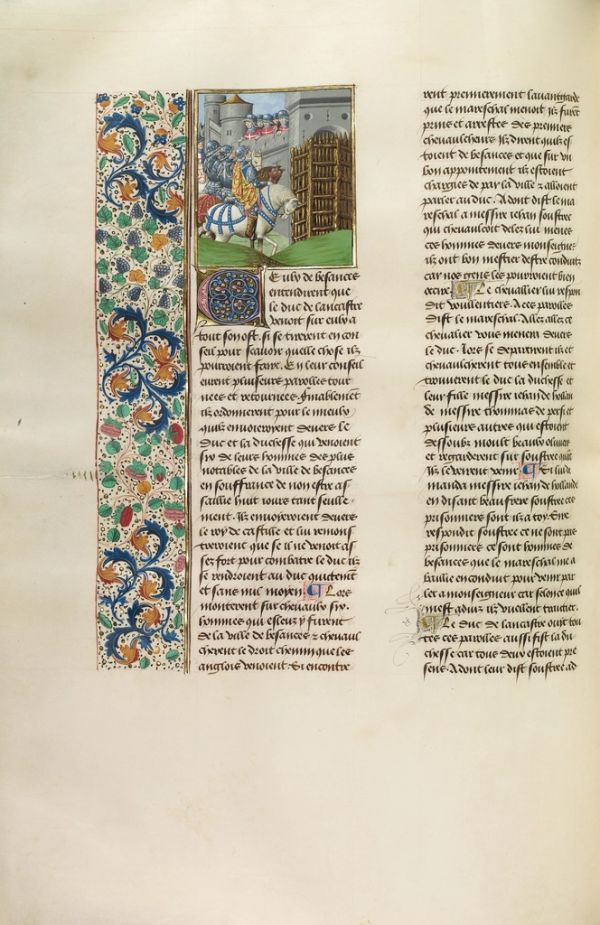 Eulx de besances
entendirent que
le duc de lancastre
venoit sur eulx a
tout son ost. si se tirerent en con
seil pour scauoir quelle chose ilz
pourroient faire. En leur conseil
eurent plusieurs parolles tour
nees et retournees. finablement
ilz ordonnerent pour le mieulx
quilz enuoyeroient deuers le
duc et la duchesse qui venoient
six de leurs hommes des plus
notables de la ville de besances
en souffrance de non estre as
saillie huit iours tant seulle
ment. Ilz enuoyeroient deuers
le roy de castille et luy remons
treroient que se il ne venoit as
sez fort pour combatre le duc ilz
se rendroient au duc quictement
et sans nul moyen ¶ Lors
monterent sur cheuaulx six
hommes qui esleuz y furent
de la ville de besances & cheuaul
cherent le droit chemin que les
anglois venoient. Si encontre
rent premierement lauantgarde
que le mareschal menoit ilz furent
prins et arrestes des premiers
cheuaulcheurs. Ilz dirent quilz es
toient de besances et que sur vn
bon appointement ilz estoient
chargies de par la ville & alloient
parler au duc. Adont dist le ma
reschal a messire iehan souffre
qui cheuaulcoit delez luy menes
ces hommes deuers monseigneur
ilz ont bon mestier destre conduitz
car nos gens les pourroient bien
occire. ¶ Le cheuallier luy respon
dit voulentiers. A ces parolles
dist le mareschal. Allez allez ce
cheualier vous menera deuers
le duc. lors se departirent ilz et
cheuaulcherent tous ensemble et
trouuerent le duc la duchesse et
leur fille messire iehan de hollan
de messire thommas de persi et
plusieurs autres qui estoient
dessoubz moult beaulx oliuiers
et regarderent sur souffre quant
ilz le virent venir ¶ Si luy de
manda messire iehan de hollande
en disant beau frere souffre ces
prisonniers sont ilz a toy. Sire
respondit souffre ce ne sont pas
prisonniers ce sont hommes de
besances que le mareschal ma
baillie en conduit pour venir par
ler a monseigneur car selonc quil
mest aduiz ilz vueillent traictier.
¶ Le duc de lancastre ouyt tou
tes ces parolles aussi fist la du
chesse car tous deux estoient pre
sens. Adont leur dist souffre ad